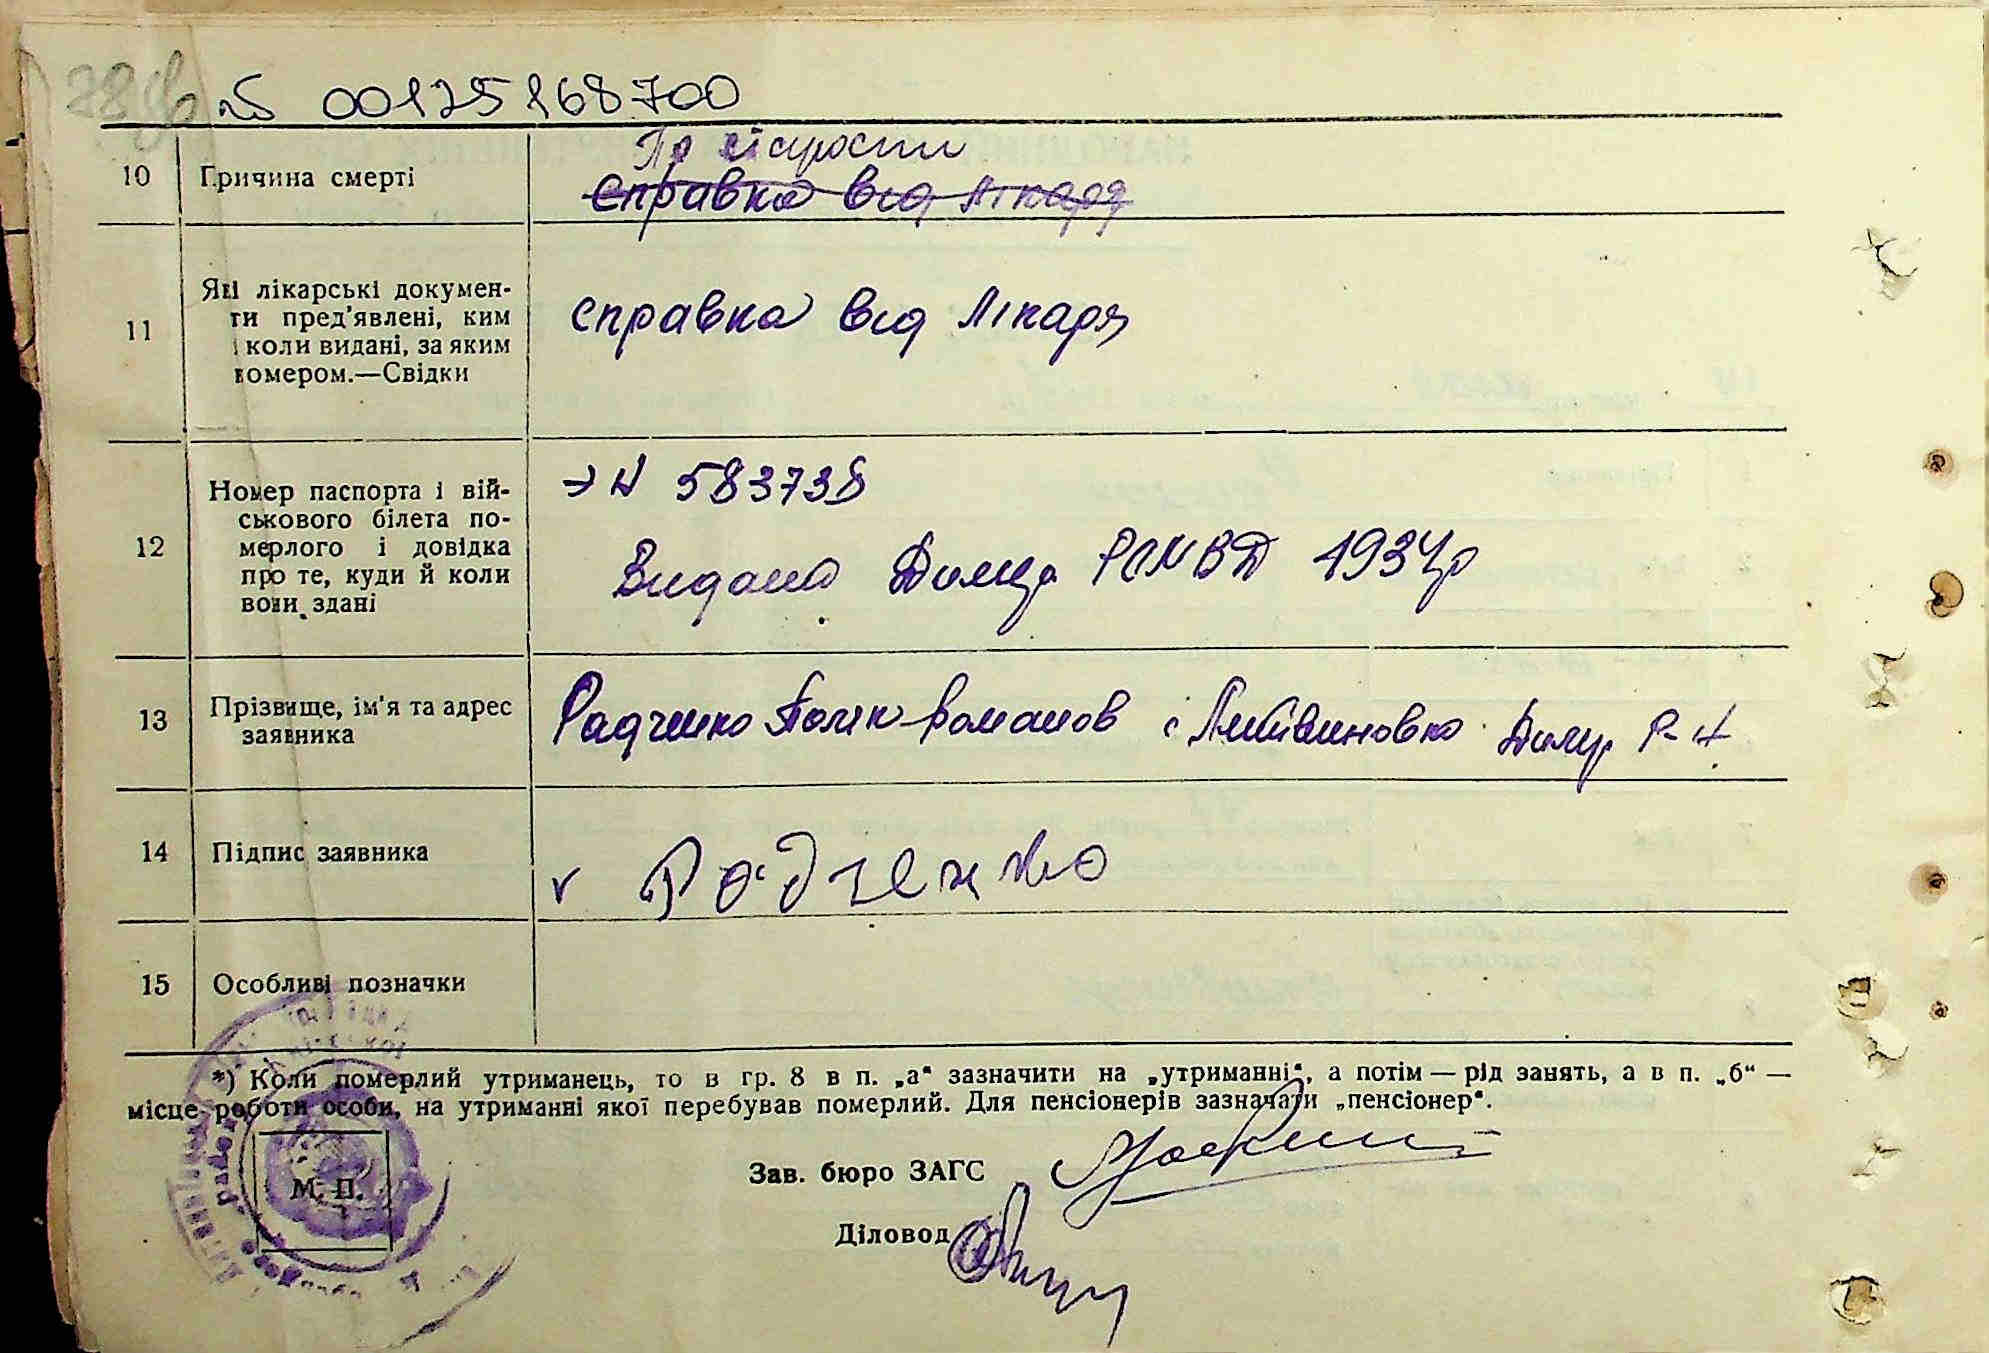 № 00125168700
10 Причина смерті По старости
Справка від Лікаря
11 Які лікарські докумен-
ти пред'явлені, ким
і коли видані, за яким
номером.—Свідки
справка від Лікаря
12 Номер паспорта і вій-
ськового білета по-
мерлого і довідка
про те, куди й коли
вони здані
№ 583738
Видана РКМВД
13 Прізвище, ім'я та адрес
заявника
Радченко Романов с Литвиновка Р-н
14 Підпис заявника
v Радченко
15 Особливі позначки
*) Коли померлий утриманець, то в гр. 8 в п. „а“ зазначити на „утриманні“, а потім — рід занять, а в п. „б“ —
місце роботи особи, на утриманні якої перебував померлий. Для пенсіонерів зазначати „пенсіонер“.
Зав. бюро ЗАГС
М. П.
Діловод